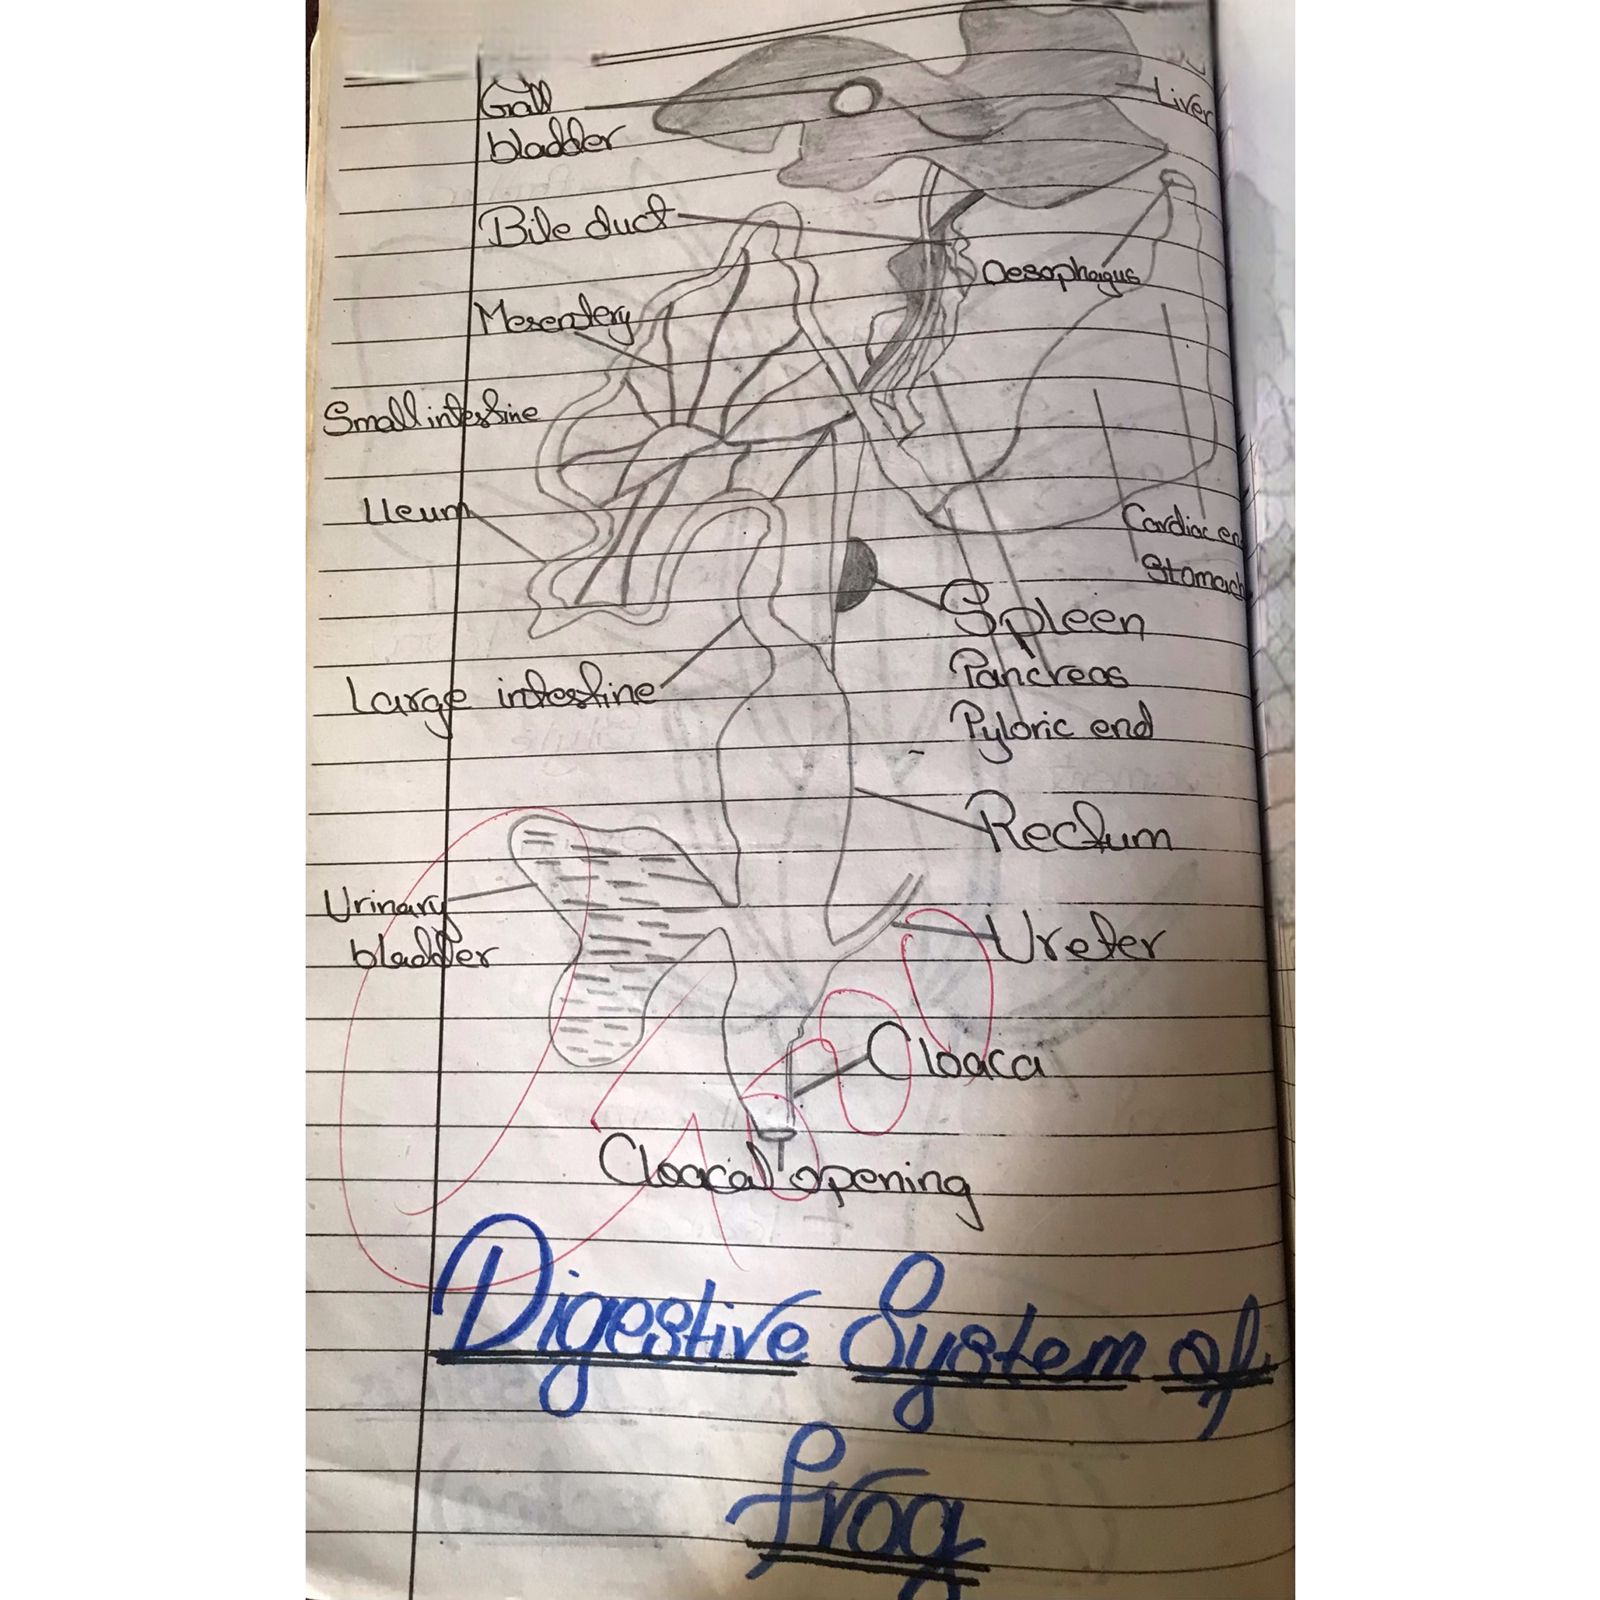 Gall
bladder
Liver
Bile duct
Oesophagus
Mesentery
Small intestine
Ileum
Cardiac en
Stomach
Spleen
Large intestine
Pancreas
Pyloric end
Rectum
Urinary
bladder
Ureter
Cloaca
Cloacal opening
Digestive System of
frog